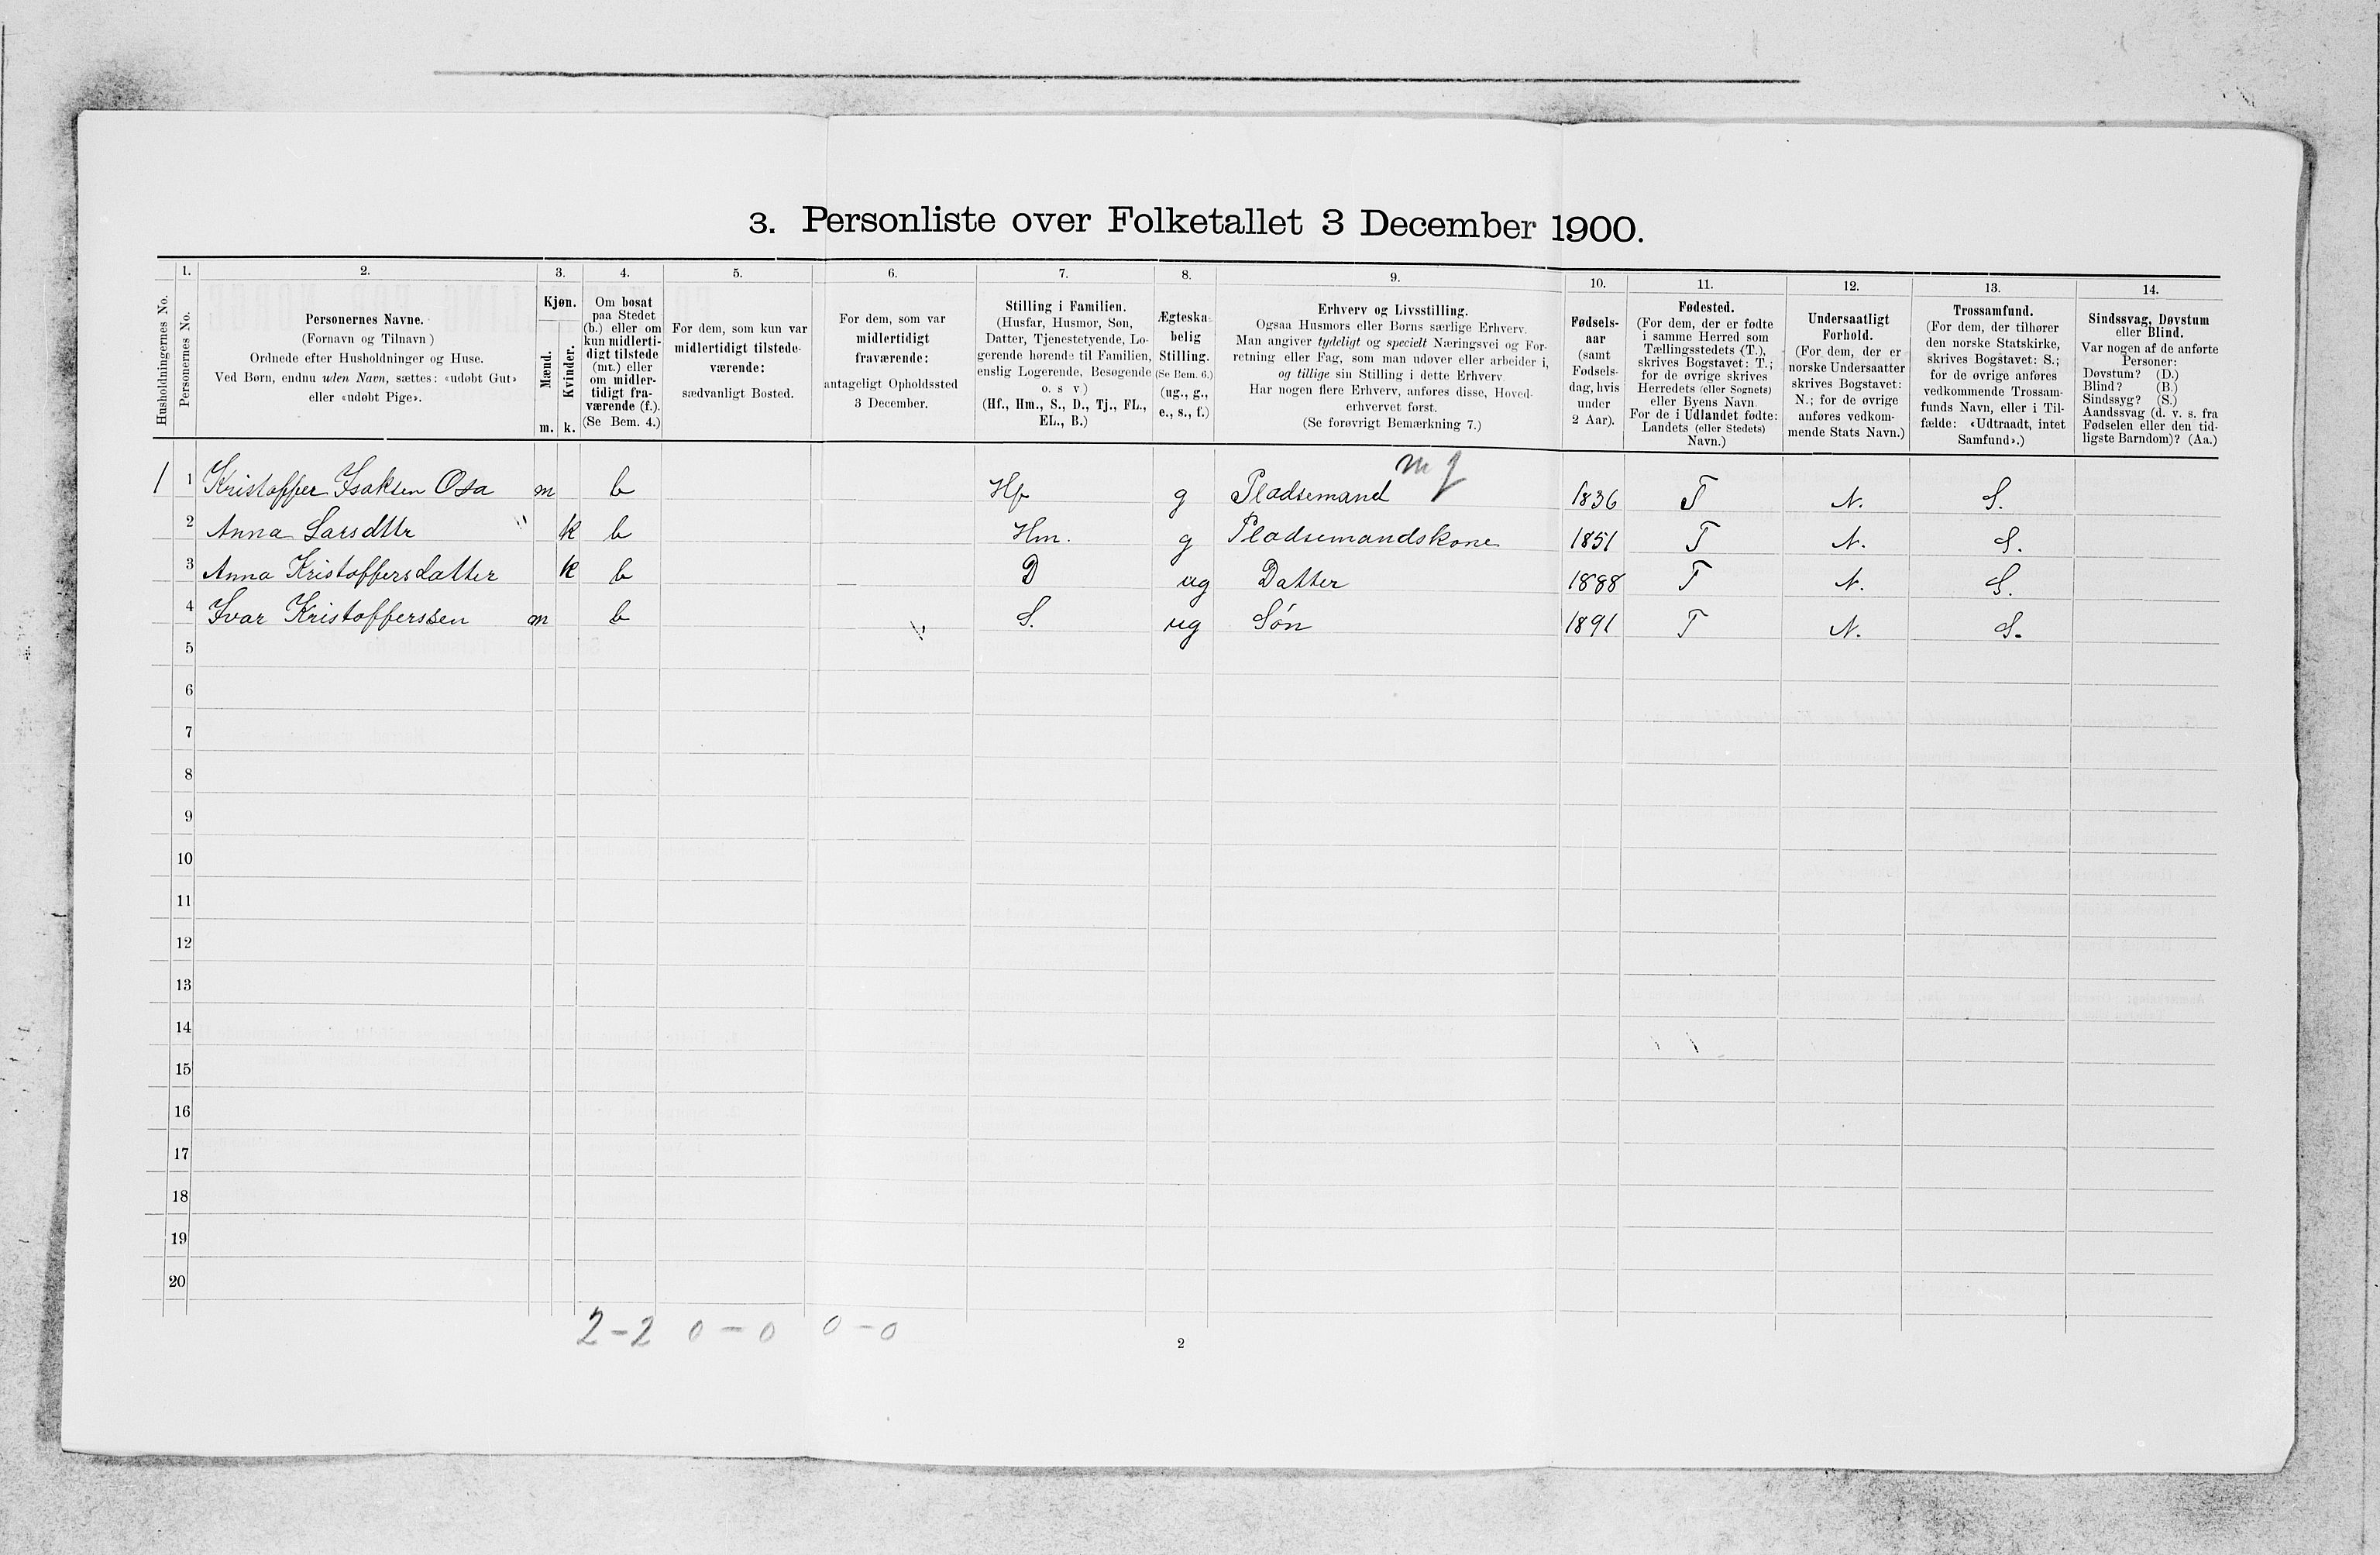 3. Personliste over Folketallet 3 December 1900.
Husholdningernes No.
1.
Personernes No.
2.
Personernes Navne.
(Fornavn og Tilnavn )
Ordnede efter Husholdninger og Huse.
Ved Børn, endnu uden Navn, sættes: «udøbt Gut»
eller «udøbt Pige».
3.
Kjøn.
Mænd.
Kvinder.
m. k.
4.
Om bosat
paa Stedet
(b.) eller om
kun midlerti-
digt tilstede
(mt.) eller
om midler-
tidigt fra-
værende (f.).
(Se Bem. 4.)
5.
For dem, som kun var
midlertidigt tilstede-
værende:
sædvanligt Bosted.
6.
For dem, som var
midlertidigt
fraværende:
antageligt Opholdssted
3 December.
7.
Stilling i Familien.
(Husfar, Husmor, Søn,
Datter, Tjenestetyende, Lo-
gerende hørende til Familien,
enslig Logerende, Besøgende
o. s v )
(Hf., Hm., S., D., Tj., FL.,
EL., B.)
8.
Ægteska-
belig
Stilling.
(Se Bem. 6.)
(ug., g.,
e., s., f.)
9.
Erhverv og Livsstilling.
Ogsaa Husmors eller Børns særlige Erhverv.
Man angiver tydeligt og specielt Næringsvei og For-
retning eller Fag, som man udøver eller arbeider i,
og tillige sin Stilling i dette Erhverv.
Har nogen flere Erhverv, anføres disse, Hoved-
erhvervet først.
(Se forøvrigt Bemærkning 7.)
10.
Fødsels-
aar
(samt
Fødsels-
dag, hvis
under
2 Aar).
11.
Fødested.
(For dem, der er fødte
i samme Herred som
Tællingsstedets (T.),
skrives Bogstavet: T.;
for de øvrige skrives
Herredets (eller Sognets)
eller Byens Navn
For de i Udlandet fødte:
Landets (eller Stedets)
Navn.)
12.
Undersaatligt
Forhold.
(For dem, der er
norske Undersaatter
skrives Bogstavet:
N.; for de øvrige
anføres vedkom-
mende Stats Navn.)
13.
Trossamfund.
(For dem, der tilhører
den norske Statskirke,
skrives Bogstavet: S.;
for de øvrige anføres
vedkommende Trossam-
funds Navn, eller i Til-
fælde: «Udtraadt, intet
Samfund».)
14.
Sindssvag, Døvstum
eller Blind.
Var nogen af de anførte
Personer:
Døvstum? (D.)
Blind? (B.)
Sindssyg? (S.)
Aandssvag (d. v. s. fra
Fødselen eller den tid-
ligste Barndom)? (Aa.)
1 1 Kristoffer Isaksen Osa m b Hf g Pladsemand 1836 T N. S.
2 Anna Larsdttr " k b Hm. g Pladsemandskone 1851 T N. S.
3 Anna Kristoffersdatter k b D ug Datter 1888 T N. S.
4 Ivar Kristofferssen m b S. ug Søn 1891 T N. S.
5
6
7
8
9
10
11
12
13
14
15
16
17
18
19
20
2-2 0-0 0-0
2